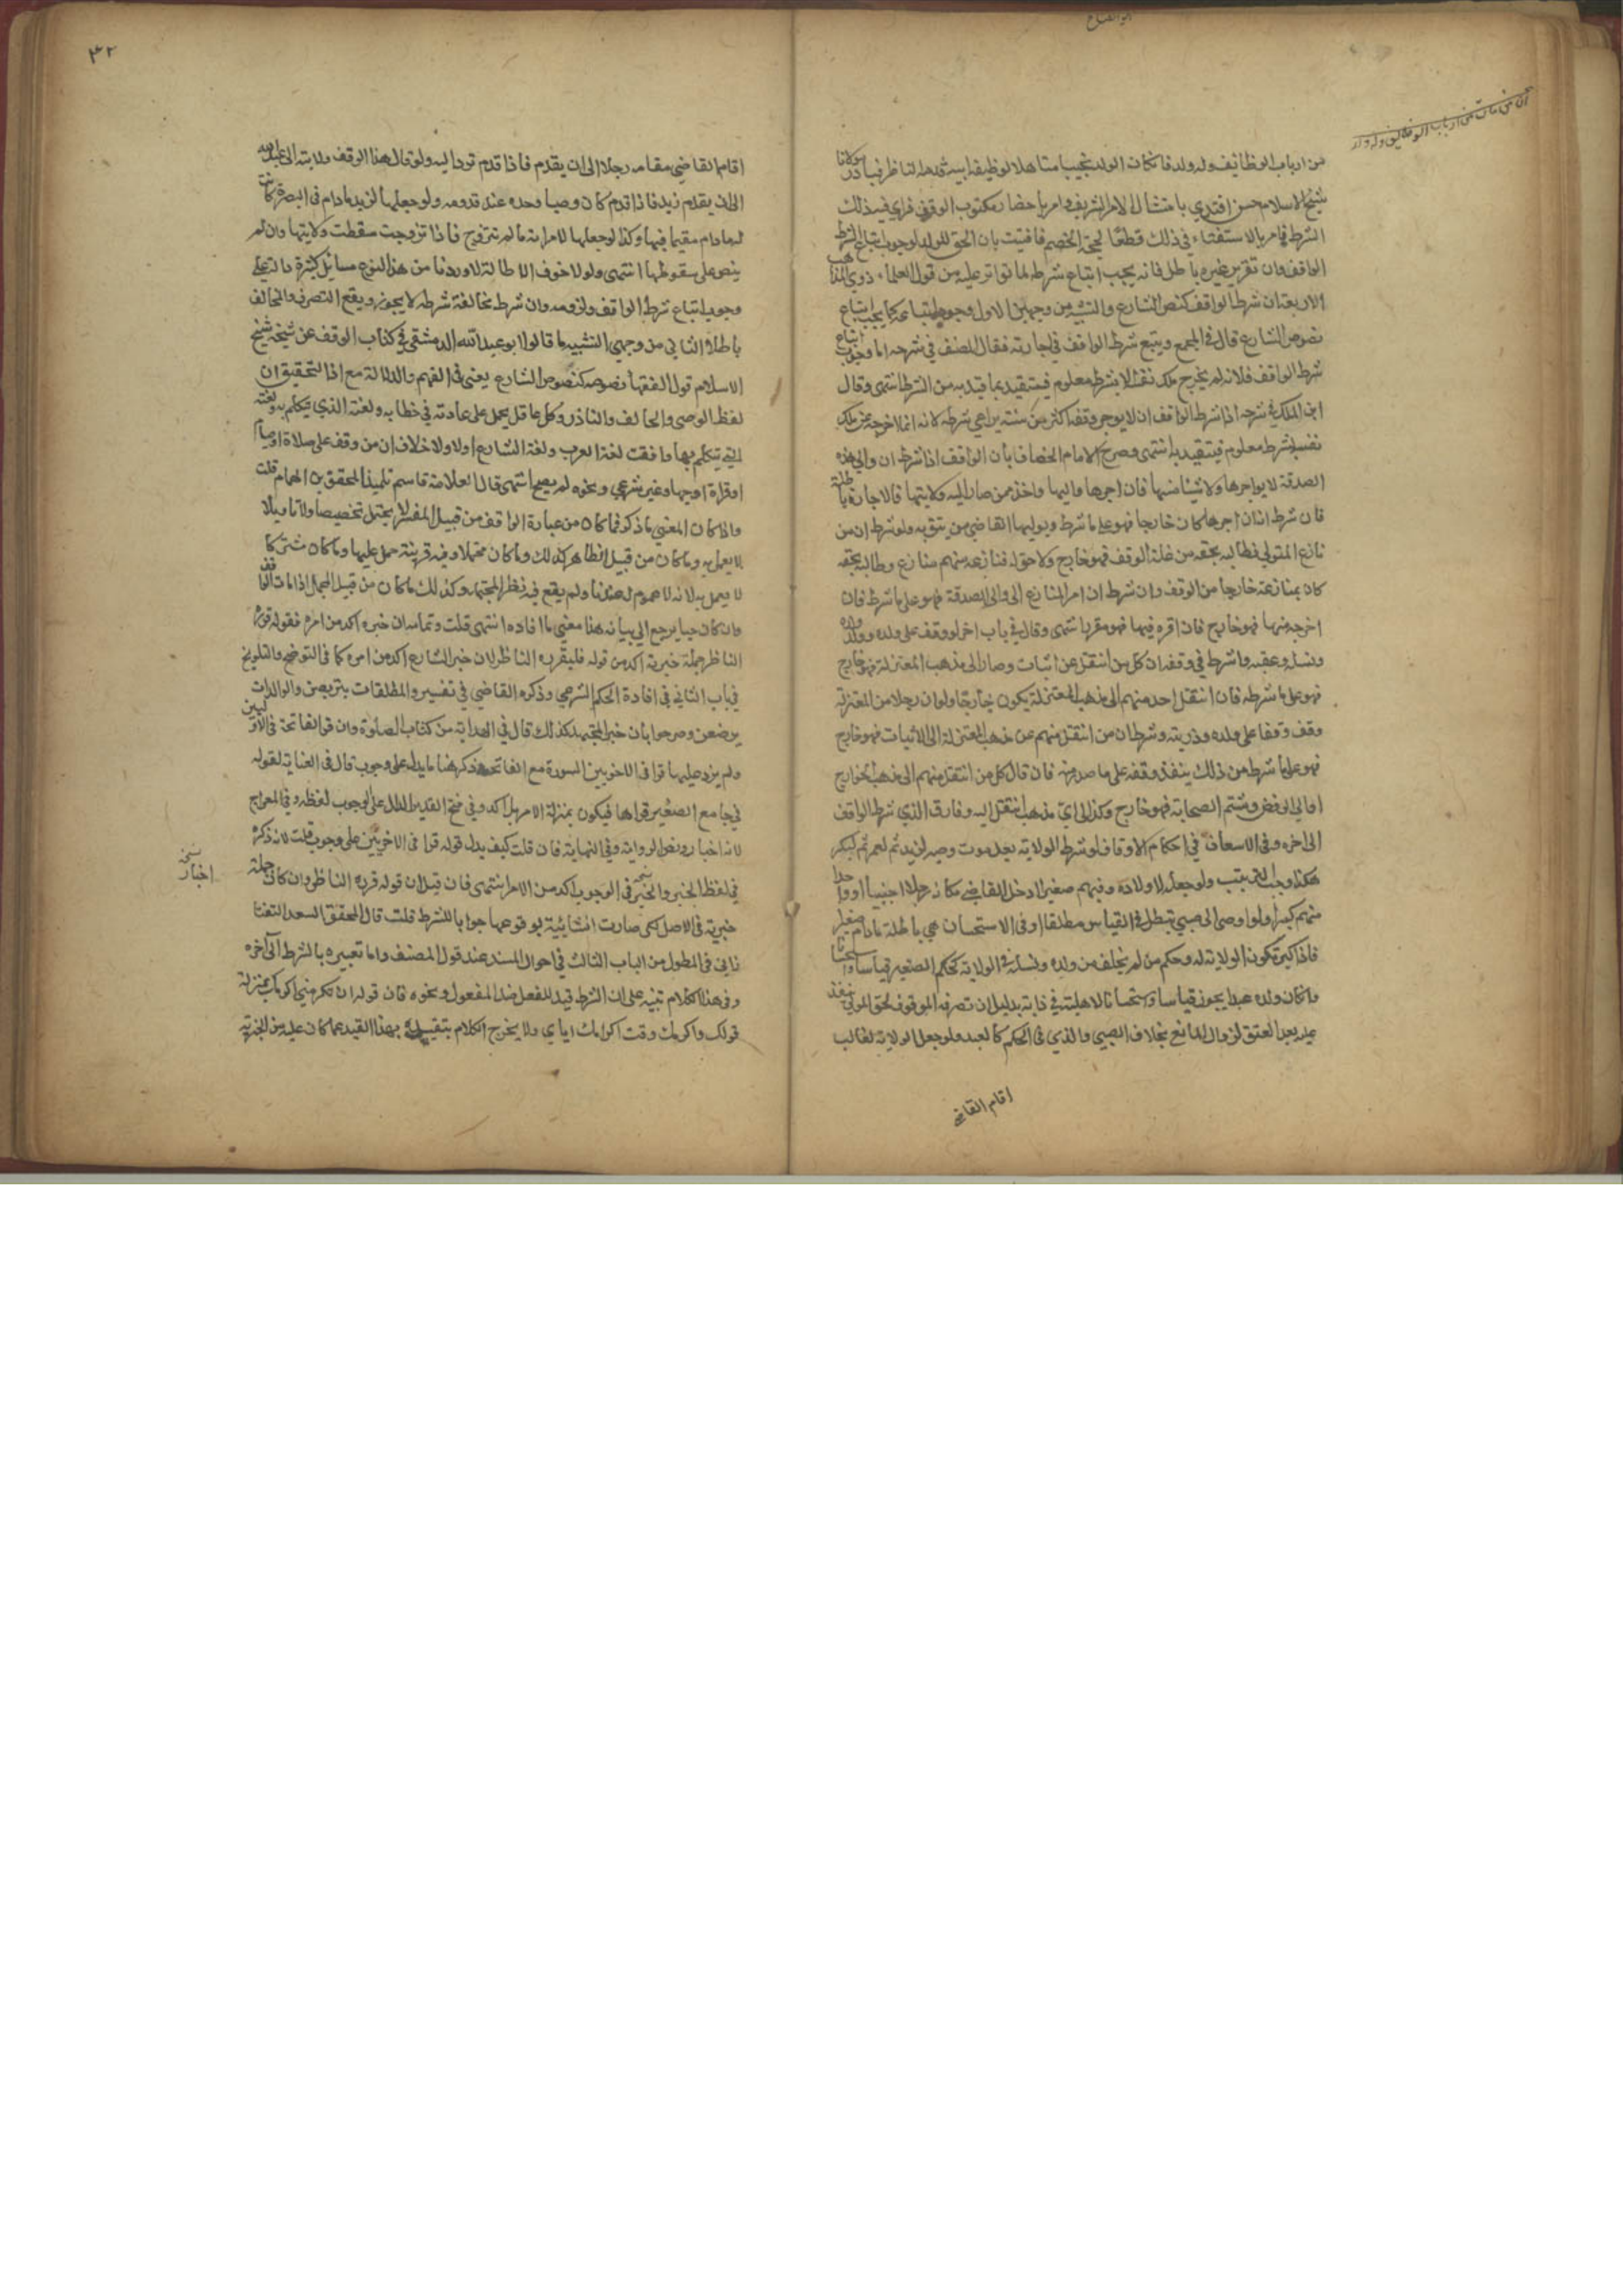 من ارباب الوظائف وله ولد فان كان الولد نجيبا متاهلا لوظيفة ابيه قدمه الناظر فبادر مولانا
شيخ الاسلام حسن افندي بامتثال الامر الشريف وامر باحضار مكتوب الوقف فراي فيه ذلك
الشرط فامر بالاستفتاء في ذلك قطعا لحجة الخصم فافتيت بان الحق للولد لوجوب اتباع شرط
الواقف وان تقرير غيره باطل فانه يجب اتباع شرطه لما تواتر عليه من قول العلماء ذوي المذاهب
الاربعة ان شرط الواقف كنص الشارع والتشبيه من وجهين الاول وجوب اتباعه كما يجب اتباع
نصوص الشارع قال في المجمع ويتبع شرط الواقف في اجارته فقال المصنف في شرحه اما وجوب اتباع
شرط الواقف فلانه لم يخرج ملك نفسه الا بشرط معلوم فيتقيد بما قيد به من الشرط انتهى وقال
ابن الملك في شرحه اذا شرط الواقف ان لا يوجر وقفه اكثر من سنة يراعي شرطه لانه انما اخرجه عن ملك
نفسه بشرط معلوم فيتقيد به انتهى وصرح الامام الخصاف بأن الواقف اذا شرط ان والي هذه
الصدقة لا يواجرها ولا شيئا منها فان اجرها واليها واخذ ممن صار اليه ولايتها فالاجارة باطلة
فان شرط انه ان اجرها كان خارجا فهو على ما شرط ويوليها القاضي من يثق به ولو شرط ان من
نازع المتولي فطالبه بحقه من غلة الوقف فهو خارج ولا حق له فنازعه منهم منازع وطالبه بحقه
كان بمنازعته خارجا من الوقف وان شرط ان امر المنازع الى والي الصدقة فهو على ما شرط فان
اخرجه منها فهو خارج فان اقره فيها فهو مقر بها انتهى وقال في باب اخر لو وقف على ولده وولد ولده
ونسله وعقبه وشرط في وقفه ان كل من انتقل عن اثبات وصار الى مذهب المعتزلة فهو خارج
فهو على ما شرطه فان انتقل احد منهم الى مذهب المعتزلة يكون خارجا ولو ان رجلا من المعتزلة
وقف وقفا على ولده وذريته وشرط ان من انتقل منهم عن مذهب المعتزلة الى الاثبات فهو خارج
فهو على ما شرط من ذلك ينفذ وقفه على ما صدر منه فان قال كل من انتقل منهم الى مذهب الخوارج
او الى الرفض وشتم الصحابة فهو خارج وكذا الى اي مذهب انتقل اليه وفارق الذي شرط الواقف
الى اخره وفي الاسعاف في احكام الاوقاف لو شرط الولاية بعد موت وصيه لزيد ثم لعمر ثم لبكر
هكذا وجب الترتيب ولو جعله لاولاده وفيهم صغير ادخل القاضي مكانه رجلا اجنبيا او واحدا
منهم كبيرا ولو اوصى الى صبي تبطل في القياس مطلقا وفي الاستحسان هي باطلة مادام صغيرا
فاذا كبر تكون الولاية له وحكم من لم يخلق من ولده ونسله في الولاية كحكم الصغير قياسا واستحسانا
وان كان ولده عبدا يجوز قياسا واستحسانا لاهليته في ذاته بدليل ان تصرفه الموقوف لحق المولى ينفذ
عليه بعد العتق لزوال المانع بخلاف الصبي والذي في الحكم كالعبد ولو جعل الولاية لغائب
اقام القاضي
٣٢
اقام القاضي مقامه رجلا الى ان يقدم فاذا قدم تردا اليه ولو قال هذا الوقف ولايته الى عبد الله
الى ان يقدم زيد فاذا قدم كان وصيا وحده عند قدومه ولو جعلها لزيد مادام في البصرة كانت
له مادام مقيما فيها وكذا لو جعلها لامراته ما لم تتزوج فاذا تزوجت سقطت ولايتها وان لم
ينص على سقوطها انتهى ولولا خوف الاطالة لاوردنا من هذا النوع مسائل كثيرة دالة على
وجوب اتباع شرط الواقف ولزومه وان شرط مخالفة شرطه لا يجوز ويقع التصرف والمخالف
باطلا الثاني من وجهي التشبيه ما قاله ابو عبد الله الدمشقي في كتاب الوقف عن شيخه شيخ
الاسلام قول الفقهاء نصوصه كنصوص الشارع يعني في الفهم والدلالة مع ان التحقيق ان
لفظ الموصي والحالف والناذر وكل عاقل يحمل على عادته في خطابه ولغته الذي يتكلم به ولغته
التي يتكلم بها وافقت لغة العرب ولغة الشارع اولا ولا خلاف ان من وقف على صلاة او صيام
او قراة او جهاد غير شرعي ونحوه لم يصح انتهى قال العلامة قاسم تلميذ المحقق بن الهمام قلت
واذا كان المعنى ما ذكر فما كان من عبارة الواقف من قبيل المفسر لا يحتمل تخصيصا ولا تاويلا
يعمل به وما كان من قبيل الظاهر كذلك وما كان محتملا وفيه قرينة حمل عليها وما كان مشتركا
لا يعمل به لانه لا عموم له عندنا ولم يقع فيه نظر المجتهد وكذلك ما كان من قبيل المجمل اذا مات الواقف
وان كان حيا يرجع الى بيانه هذا معنى ما افاده انتهى قلت وتمامه ان خبره اكد من امره فقوله قرره
الناظر جملة خبرية اكد من قوله فليقرره الناظر لان خبر الشارع اكد من امره كما في التوضيح والتلويح
في باب الثاني في افادة الحكم الشرعي وذكره القاضي في تفسير والمطلقات يتربصن والوالدات
يرضعن وصرحوا بأن خبر المجتهد كذلك قال في الهداية من كتاب الصلوة وان قرا الفاتحة في الاوليين
ولم يزد عليها قرا في الاخريين السورة مع الفاتحة وذكر هنا ما يدل على وجوب قال في العناية لقوله
في جامع الصغير قراها فيكون بمنزلة الامر بل اكد وفي فتح القدير المدلل على الوجوب لفظه وفي المعراج
لانه اخبار وبغو الرواية وفي النهاية فان قلت كيف يدل قوله قرا في الاخريين على وجوب قلت لانه ذكره
في لفظ الخبر والخبر في الوجوب اكد من الامر انتهى فان قيل ان قوله قرره الناظر وان كان جملة
خبرية في الاصل لكن صارت انشائية بوقوعها جوابا للشرط قلت قال المحقق السعد التفتا
زاني في المطول من الباب الثالث في احوال المسند عند قول المصنف واما تعبيره بالشرط الى آخره
وفي هذا الكلام تنبيه على ان الشرط قيد للفعل مثل المفعول ونحوه فان قوله ان تكرمني اكرمك بمنزلة
قولك واكرمك وقت اكرامك اياي ولا يخرج الكلام بتقييده بهذا القيد عما كان عليه من الخبرية
نسخة
اخبار